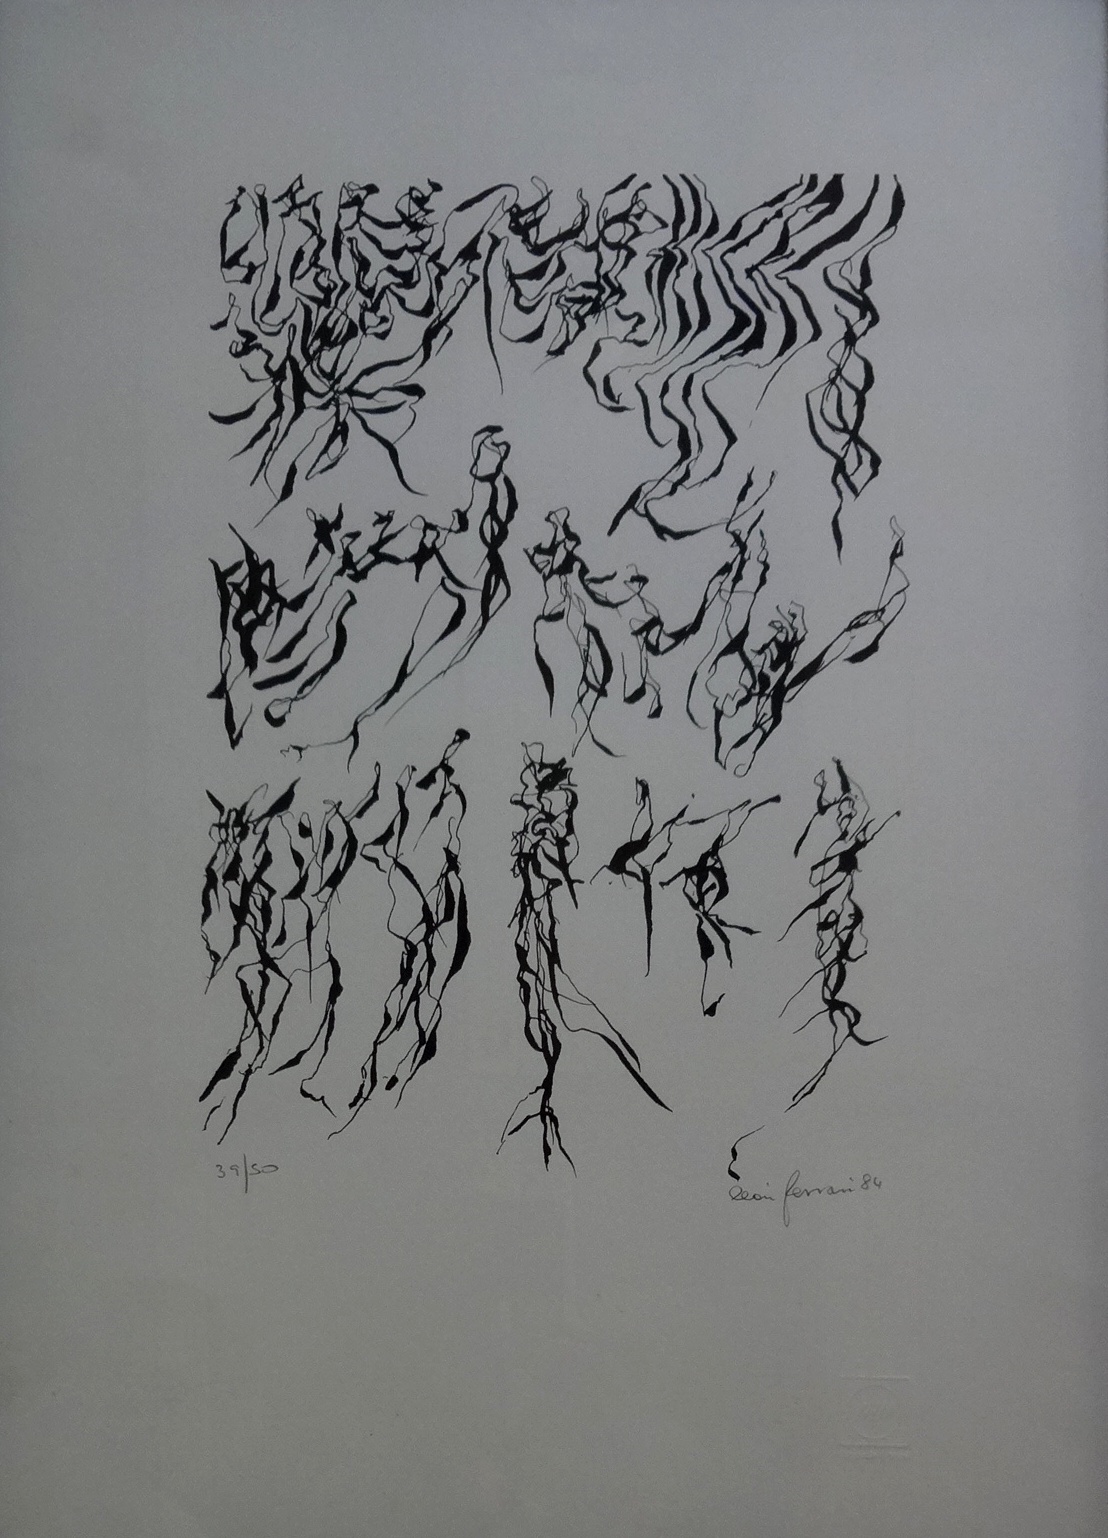 39/50
León Ferrari 84